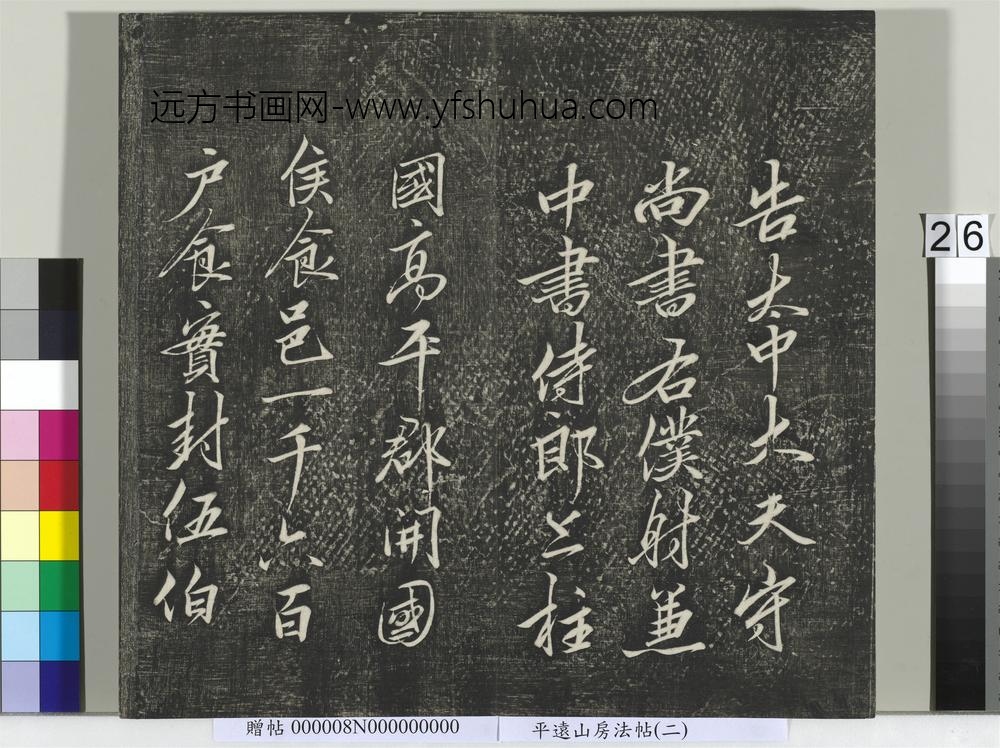 远方书画网-www.yfshuhua.com
告太中大夫守
尚書右僕射兼
中書侍郎上柱
國高平郡開國
侯食邑一千六百
户食實封伍伯
26
贈帖 000008N000000000
平遠山房法帖(二)